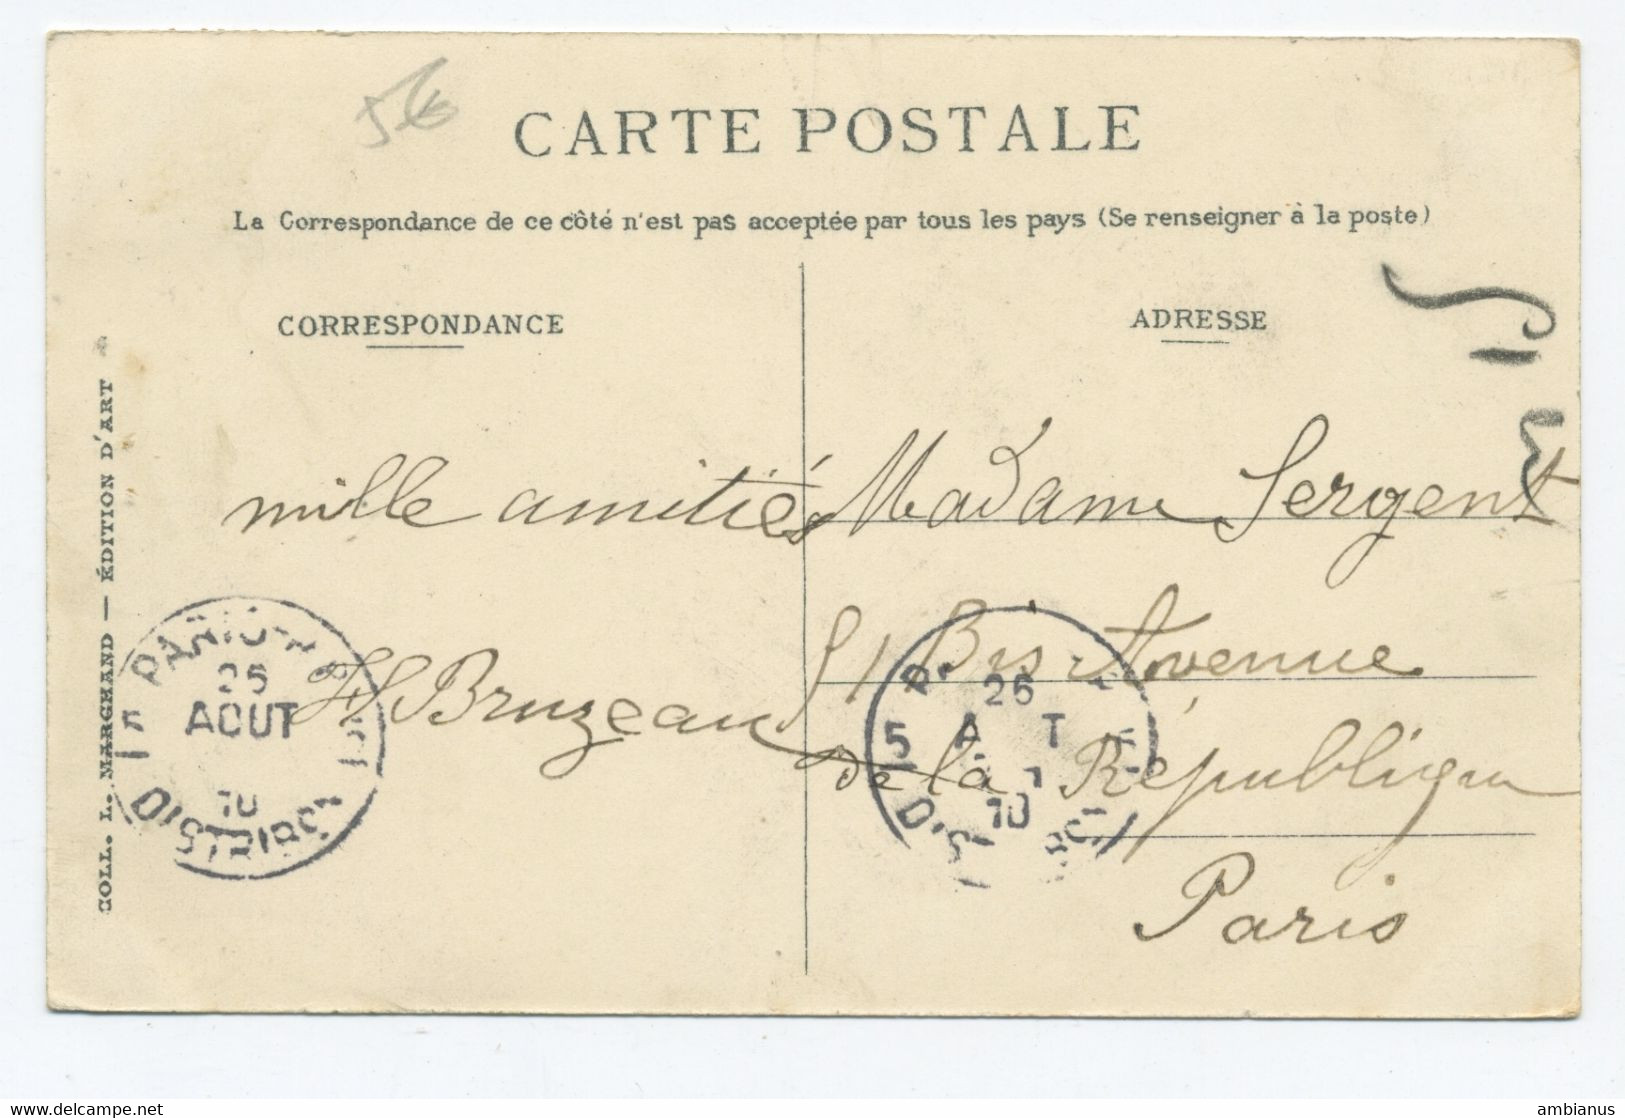 5€
CARTE POSTALE
La Correspondance de ce côté n'est pas acceptée par tous les pays (Se renseigner à la poste)
CORRESPONDANCE
mille amitiés
Bruzeau
COLL. L. MARCHAND — ÉDITION D'ART
PARIS
25
AOUT
10
DISTRIBON
ADRESSE
Madame Sergent
51 Bis Avenue
de la République
Paris
5
26
A T
10
Delcampe.net
ambianus